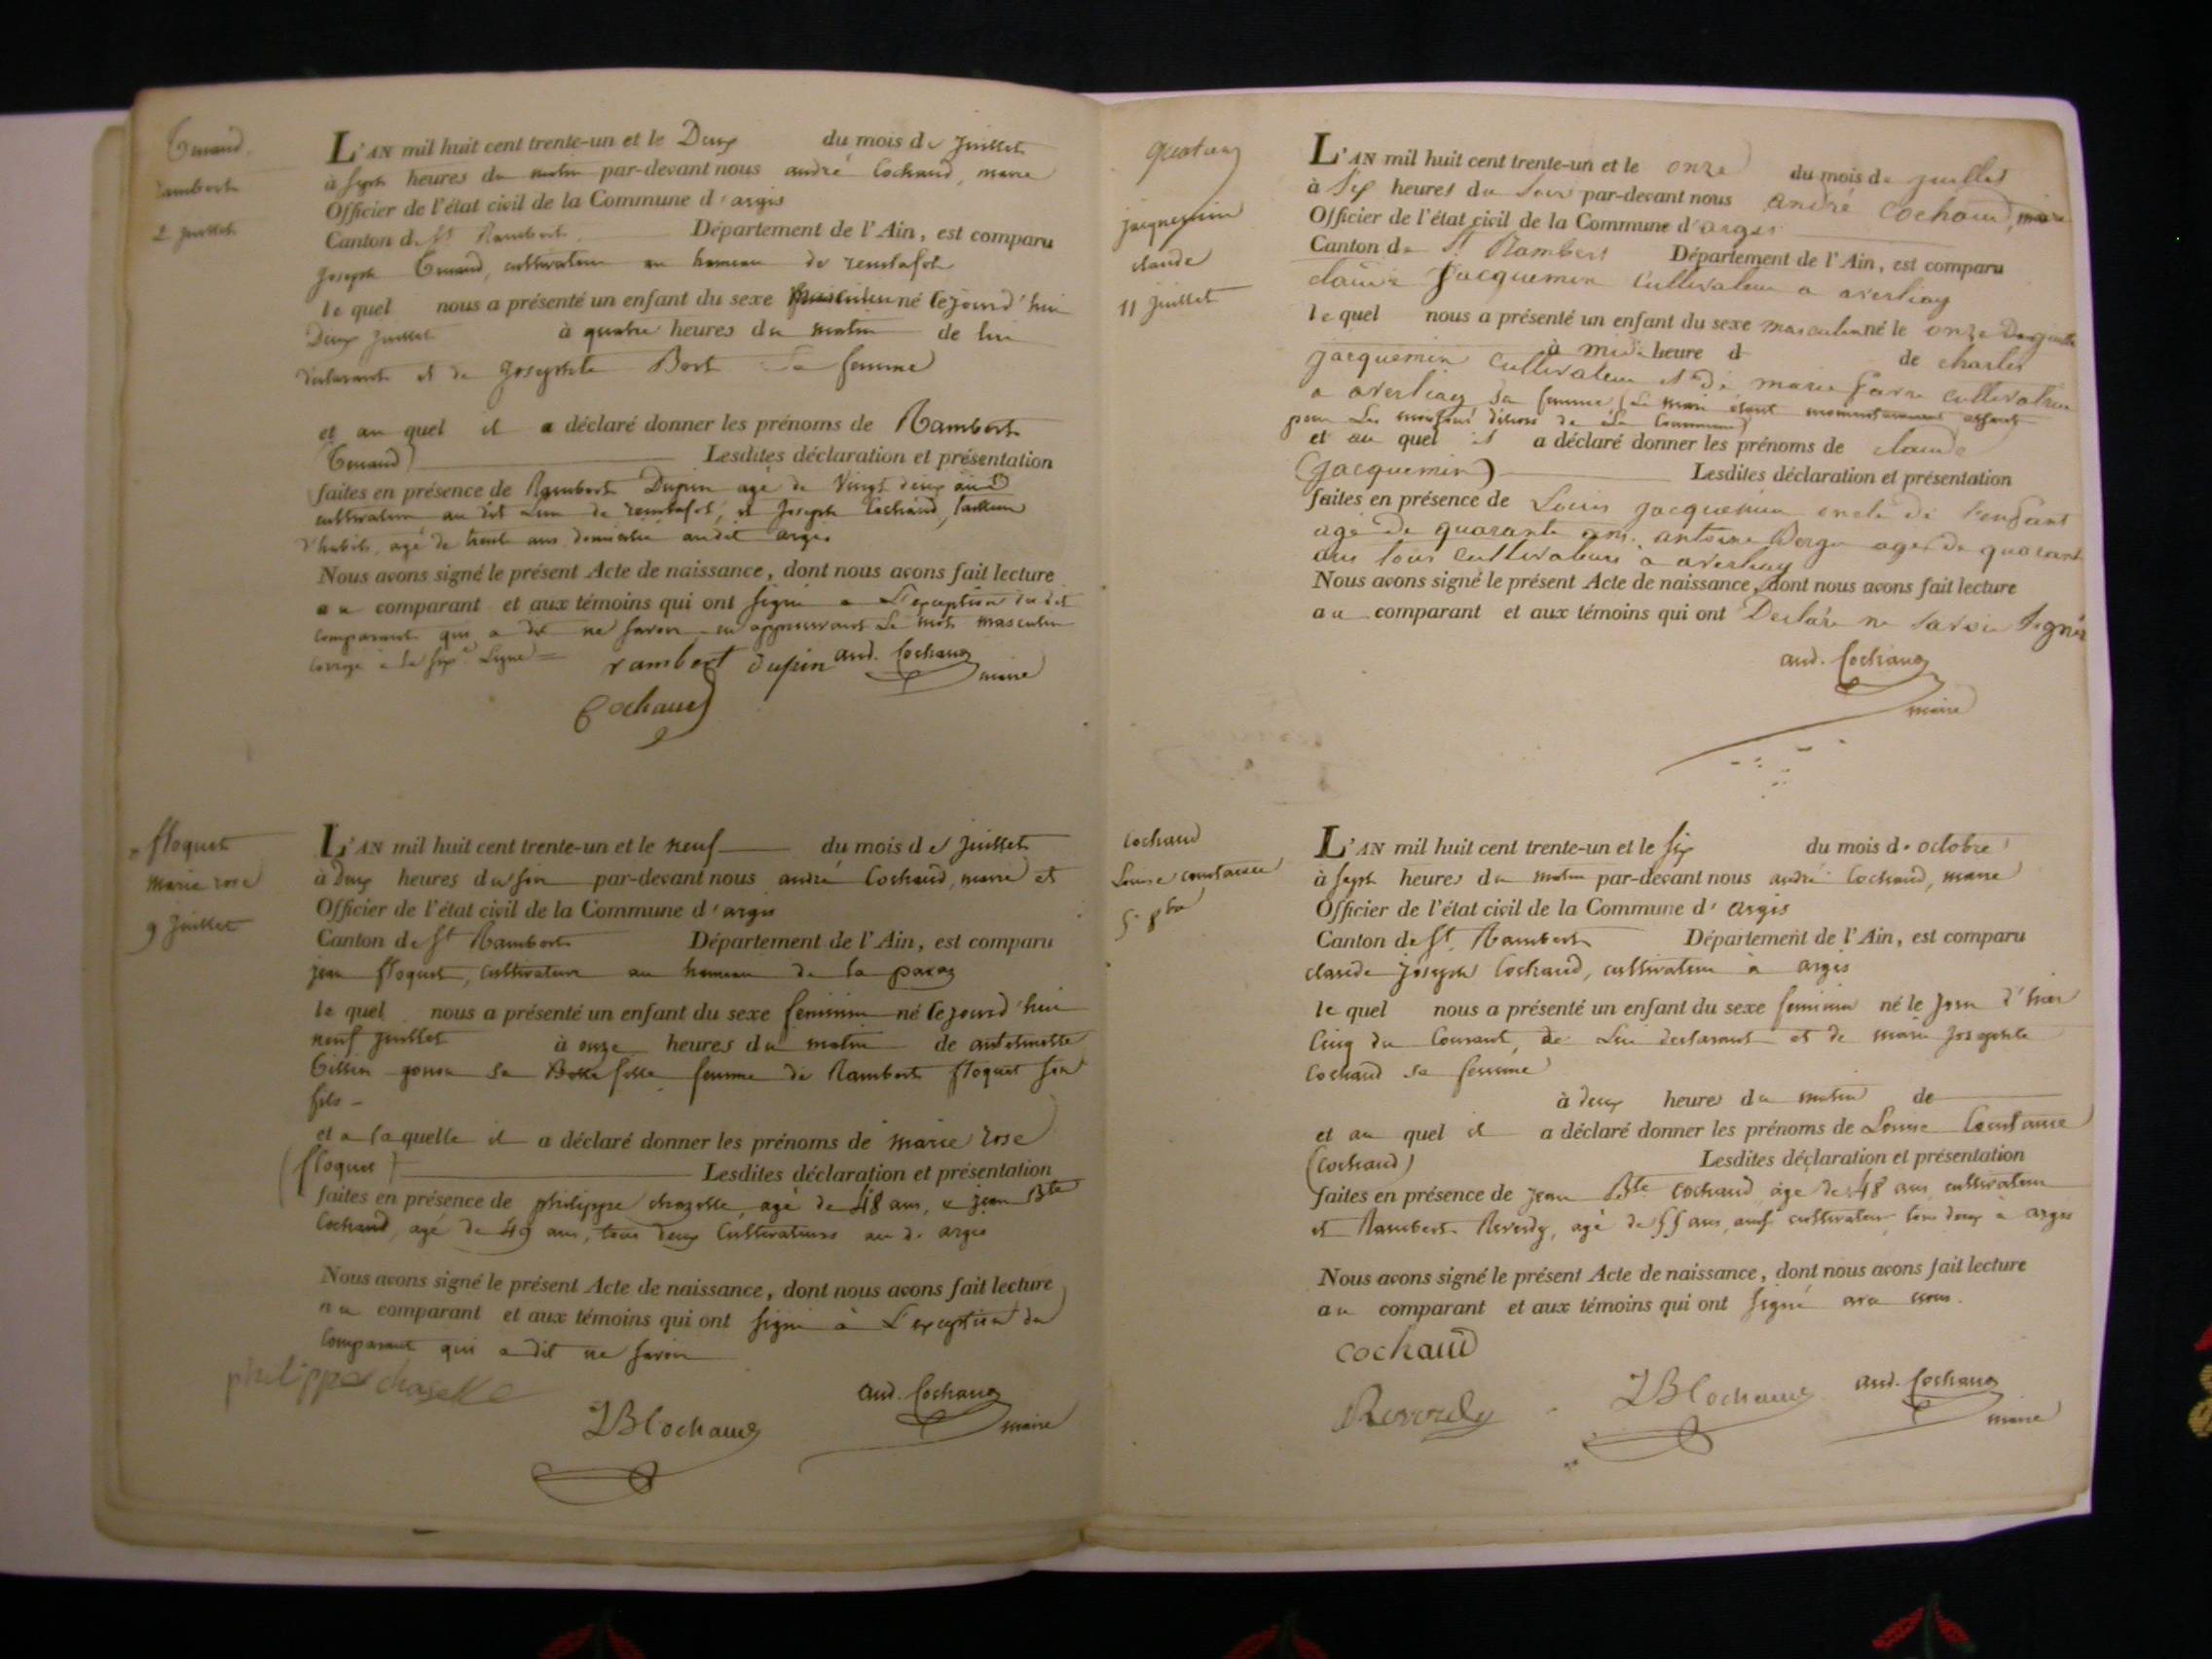 rambert
2 juillet
L'AN mil huit cent trente-un et le Deux du mois de juillet
à sept heures du matin par-devant nous andré Cochaud, maire
Officier de l'état civil de la Commune d'argis
Canton de St Rambert Département de l'Ain, est comparu
joseph cultivateur au hameau de
le quel nous a présenté un enfant du sexe masculin né le jourd'hui
Deux juillet à quatre heures du matin de lui
déclarant et de josephte Bort sa femme
et au quel il a déclaré donner les prénoms de Rambert
Lesdites déclaration et présentation
faites en présence de Rambert Dupin agé de vingt deux ans
cultivateur au dit lieu de et joseph Cochaud, tailleur
d'habits, agé de trente ans domicilié audit argis
Nous avons signé le présent Acte de naissance, dont nous avons fait lecture
au comparant et aux témoins qui ont signé a L'exception du dit
comparant qui a dit ne savoir en approuvant Le mot masculin
corrigé a la sixe Ligne =
rambert dupin and. Cochaud
maire
Cochaud
floquet
marie rose
9 juillet
L'AN mil huit cent trente-un et le neuf du mois de juillet
à Deux heures du soir par-devant nous andré Cochaud, maire et
Officier de l'état civil de la Commune d'argis
Canton de St Rambert Département de l'Ain, est comparu
jean floquet, cultivateur au hameau de la
le quel nous a présenté un enfant du sexe feminin né le jourd'hui
neuf juillet à onze heures du matin de
sa Belle fille femme de Rambert floquet son
fils -
et a laquelle il a déclaré donner les prénoms de marie rose
(floquet) Lesdites déclaration et présentation
faites en présence de philippe chazelle, agé de 48 ans, & jean Bte
Cochaud, agé de 49 ans, tous deux Cultivateurs argis
Nous avons signé le présent Acte de naissance, dont nous avons fait lecture
au comparant et aux témoins qui ont signé à L'exception du
comparant qui a dit ne savoir
philippe chaselle
JB Cochaud
and. Cochaud
maire
jacquemin
claude
11 juillet
L'AN mil huit cent trente-un et le onze du mois de juillet
à six heures du soir par-devant nous andré Cochaud, maire
Officier de l'état civil de la Commune d'argis
Canton de St Rambert Département de l'Ain, est comparu
claude jacquemin cultivateur a averliay
le quel nous a présenté un enfant du sexe masculin né le onze Du juillet
à midi heure d de charles
jacquemin cultivateur et de marie favre cultivatrice
a averliay sa femme (Le mari étant momentanement absent
pour Les de La Commune)
et au quel il a déclaré donner les prénoms de claude
(jacquemin) Lesdites déclaration et présentation
faites en présence de Louis jacquemin oncle de l'enfant
agé de quarante ans. antoine agé de quarante
ans tous cultivateurs à averliay
Nous avons signé le présent Acte de naissance, dont nous avons fait lecture
au comparant et aux témoins qui ont Declaré ne savoir signer
and. Cochaud
maire
Cochaud
Louise constance
5. 8bre
L'AN mil huit cent trente-un et le six du mois d'octobre
à sept heures du matin par-devant nous andré Cochaud, maire
Officier de l'état civil de la Commune d'argis
Canton de St. Rambert Département de l'Ain, est comparu
claude joseph Cochaud, cultivateur à argis
le quel nous a présenté un enfant du sexe feminin né le jour d'hier
Cinq du Courant, de Lui déclarant et de marie josephte
Cochaud sa femme
à deux heures du matin de
et au quel il a déclaré donner les prénoms de Louise Constance
(Cochaud) Lesdites déclaration et présentation
faites en présence de jean Bte Cochaud âgé de 48 ans cultivateur
et Rambert Reverdy, agé de 55 ans, aussi cultivateur tous deux à argis
Nous avons signé le présent Acte de naissance, dont nous avons fait lecture
au comparant et aux témoins qui ont signé avec nous.
cochaud
Reverdy
JB Cochaud
and. Cochaud
maire